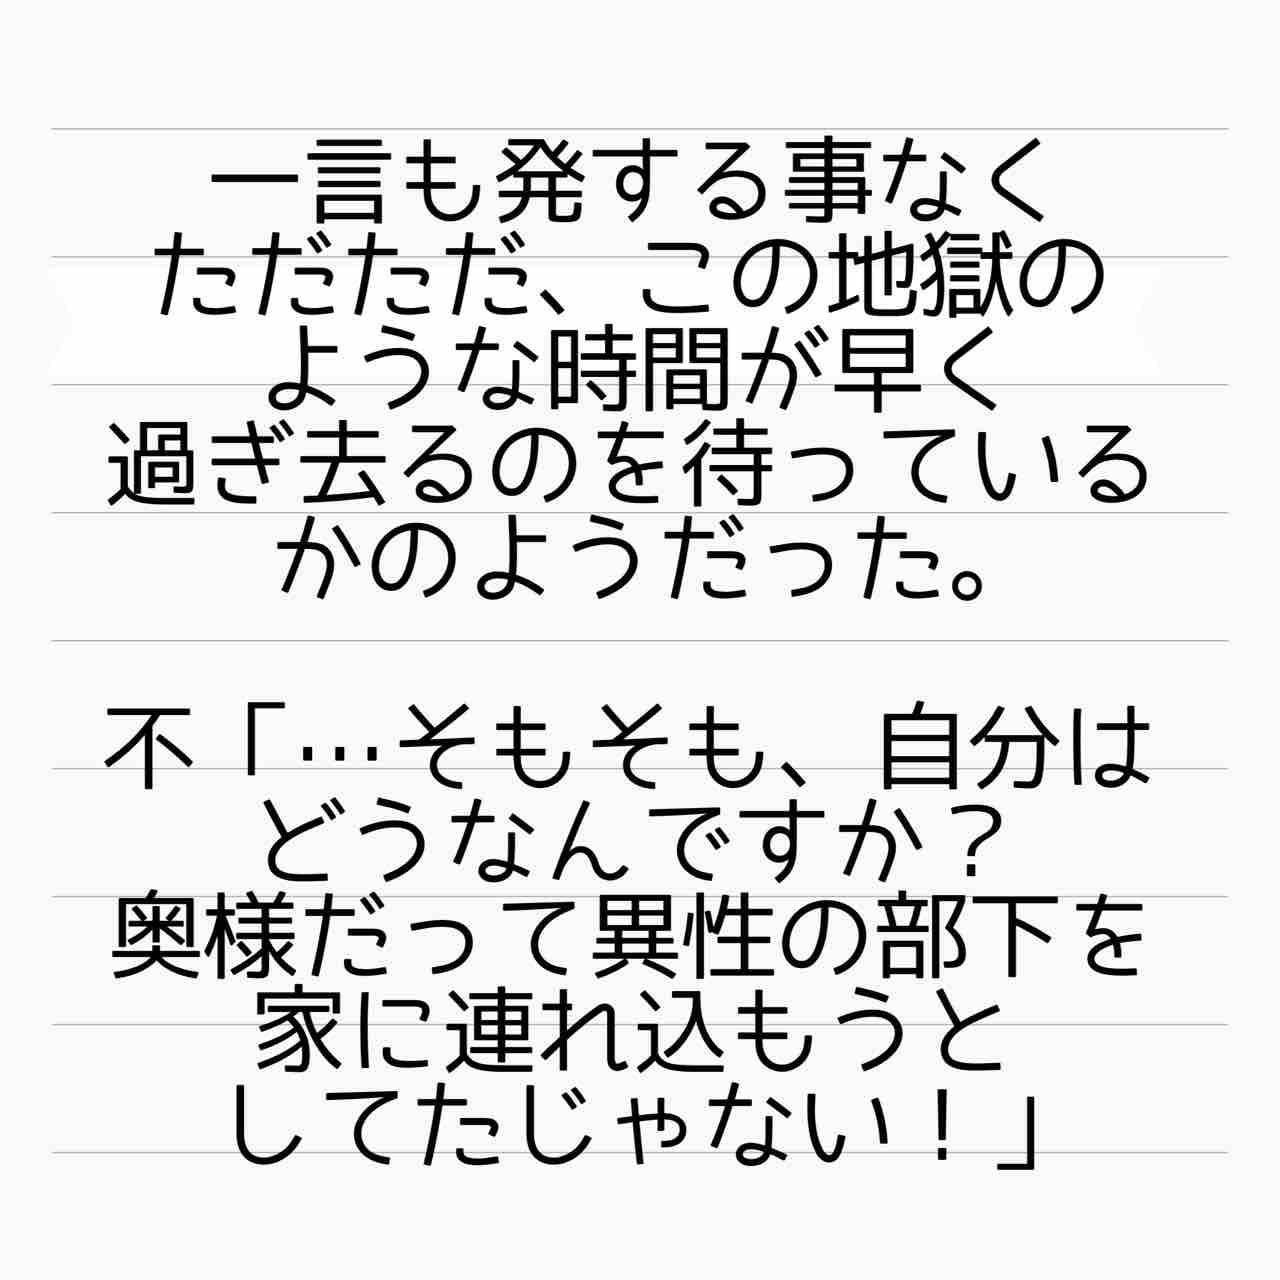 一言も発する事なく
ただただ、この地獄の
ような時間が早く
過ぎ去るのを待っている
かのようだった。
不「…そもそも、自分は
どうなんですか？
奥様だって異性の部下を
家に連れ込もうと
してたじゃない！」